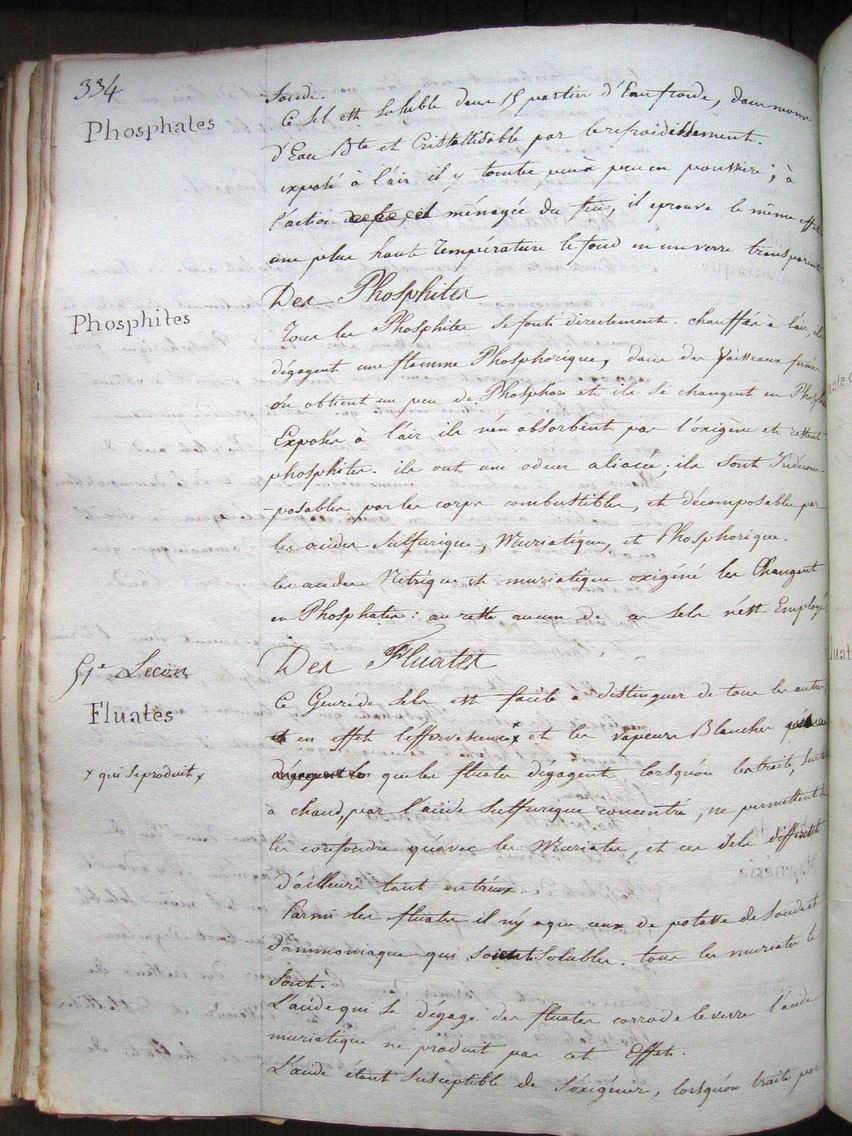 334
Phosphates
Soude.
Ce Sel est Soluble dans 15 parties d'Eau froide, dans moins
d'Eau Bte et Cristallisable par le refroidissement.
exposé à l'air il y tombe peu à peu en poussiere ; à
l'action ménagée du feu, il eprouve le même effet
une plus haute Température le fond en un verre transparent
Des Phosphites
Phosphites
Tous les Phosphites se fonts directement. chauffés à l'air, ils
dégagent une flamme Phosphorique, dans des Vaisseaux fermés
on obtient un peu de Phosphore et ils se changent en Phosph
Exposés à l'air ils n'en absorbent pas l'oxigène et restent
phosphites. ils ont une odeur aliacée ; ils sont Indécom-
-posables par les corps combustibles, et décomposables par
les acides Sulfurique, Muriatique, et Phosphorique.
les acides Nitrique et muriatique oxigéné les Changent
en Phosphates : au reste aucun de ces sels n'est Employé
Des Fluates
51e Lecon
Fluates
Ce Genre de Sels est facile à distinguer de tous les autres
en effet l'effervescence x et les vapeurs Blanches
x qui se produit x
que les fluates dégagent lorsqu'on les traite, surtout
à chaud, par l'acide Sulfurique concentré, ne permettent de
les confondre qu'avec les Muriates, et ces sels diffèrent
d'ailleurs tout entr'eux.
Parmi les fluates il n'y a que ceux de potasse de Soude et
d'ammoniaque qui soient Solubles. tous les muriates le
Sont.
L'acide qui se dégage des fluates corrode le verre l'acide
muriatique ne produit pas cet Effet.
L'acide étant susceptible de s'oxigéner, lorsqu'on traite par